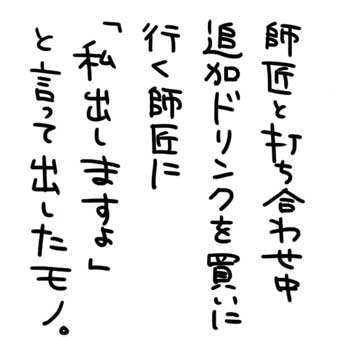 師匠と打ち合わせ中
追加ドリンクを買いに
行く師匠に
「私出しますよ」
と言って出したモノ。